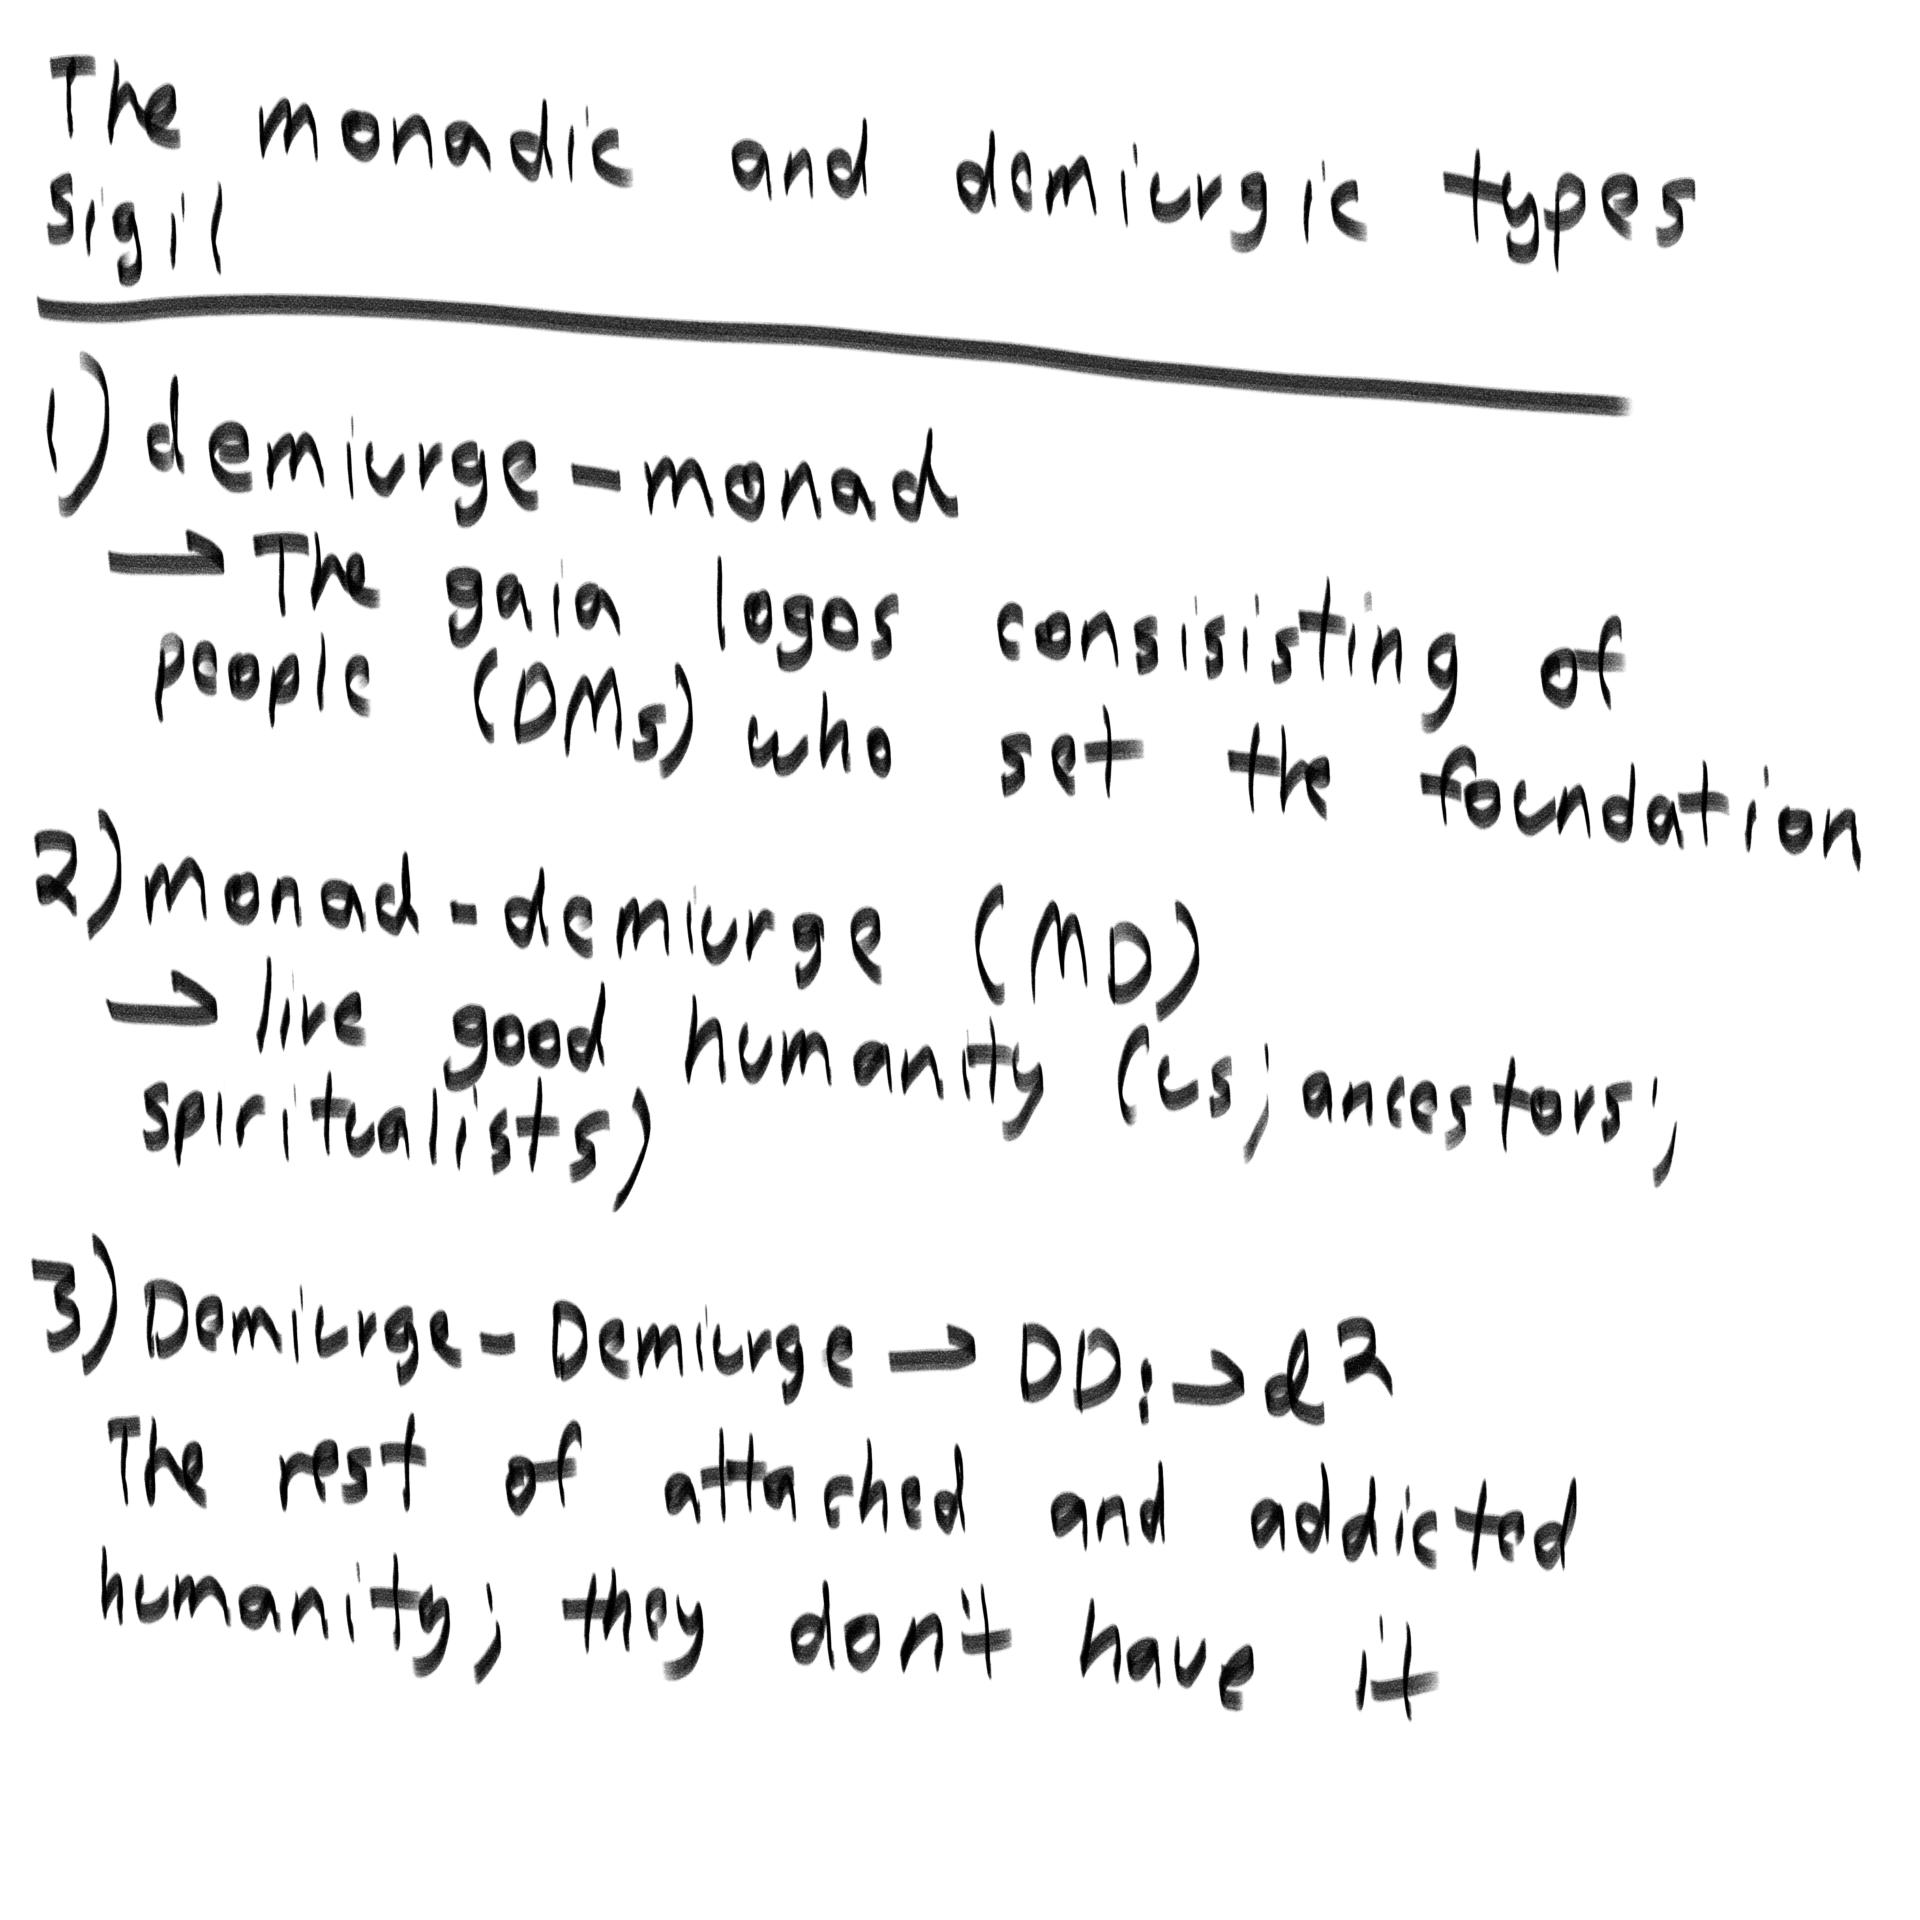 The monadic and demiurgic types
sigil
1) demiurge-monad
→ The gaia logos consisisisting of
people (DMs) who set the foundation
2) monad-demiurge (MD)
→ live good humanity (us; ancestors;
spiritualists)
3) Demiurge-Demiurge → DD; → d²
The rest of attached and addicted
humanity; they don't have it